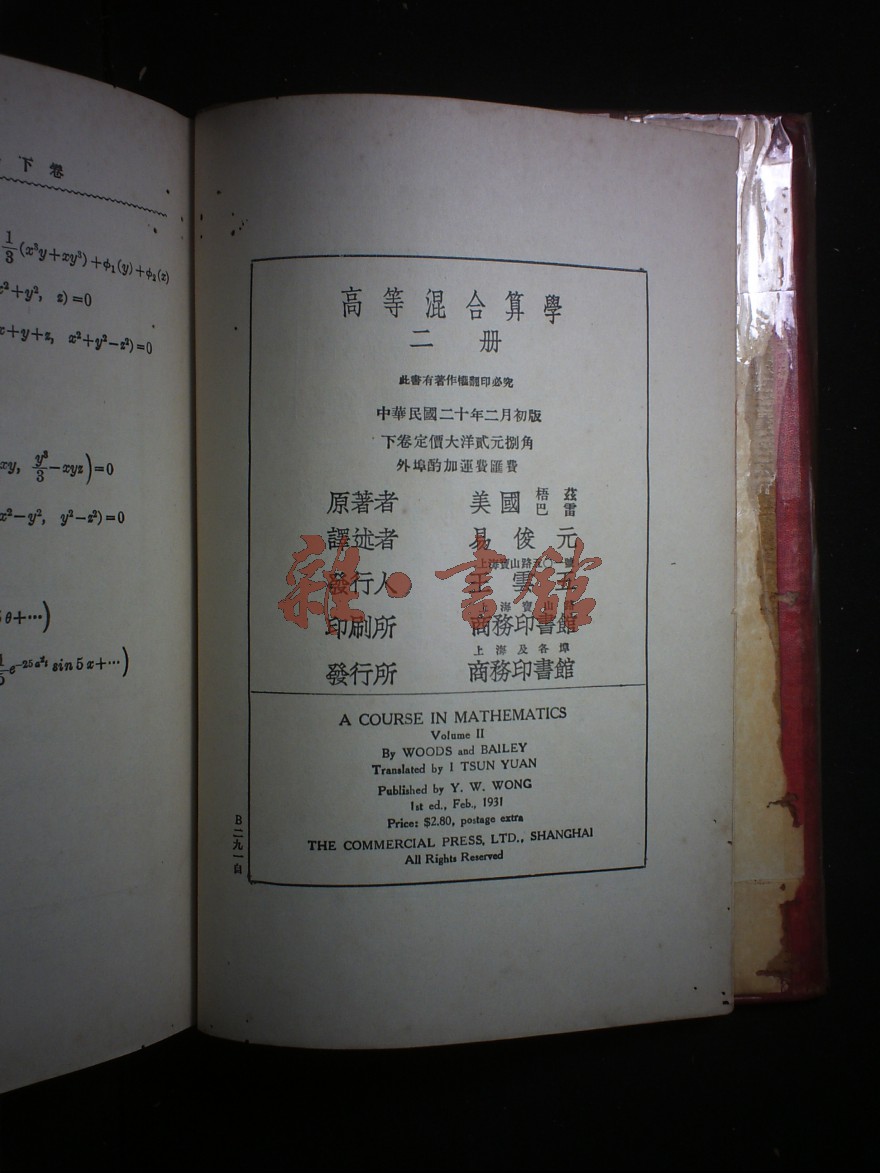 下卷
\frac{1}{3}(x³y+xy³)+ϕ₁(y)+ϕ₂(x)
x²+y², z)=0
x+y+z, x²+y²−z²)=0
xy, \frac{y³}{3}−xyz)=0
x²−y², y²−z²)=0
5θ+⋯)
e^{-25a²t} sin 5x+⋯)
高等混合算學
二册
此書有著作權翻印必究
中華民國二十年二月初版
下卷定價大洋貳元捌角
外埠酌加運費匯費
原著者 美國 梧茲 巴雷
譯述者 易俊元
上海寶山路五〇一號
發行人 王雲五
上海寶山路
印刷所 商務印書館
上海及各埠
發行所 商務印書館
雜·書館
A COURSE IN MATHEMATICS
Volume II
By WOODS and BAILEY
Translated by I TSUN YUAN
Published by Y. W. WONG
1st ed., Feb., 1931
Price: $2.80, postage extra
THE COMMERCIAL PRESS, LTD., SHANGHAI
All Rights Reserved
B二九一自